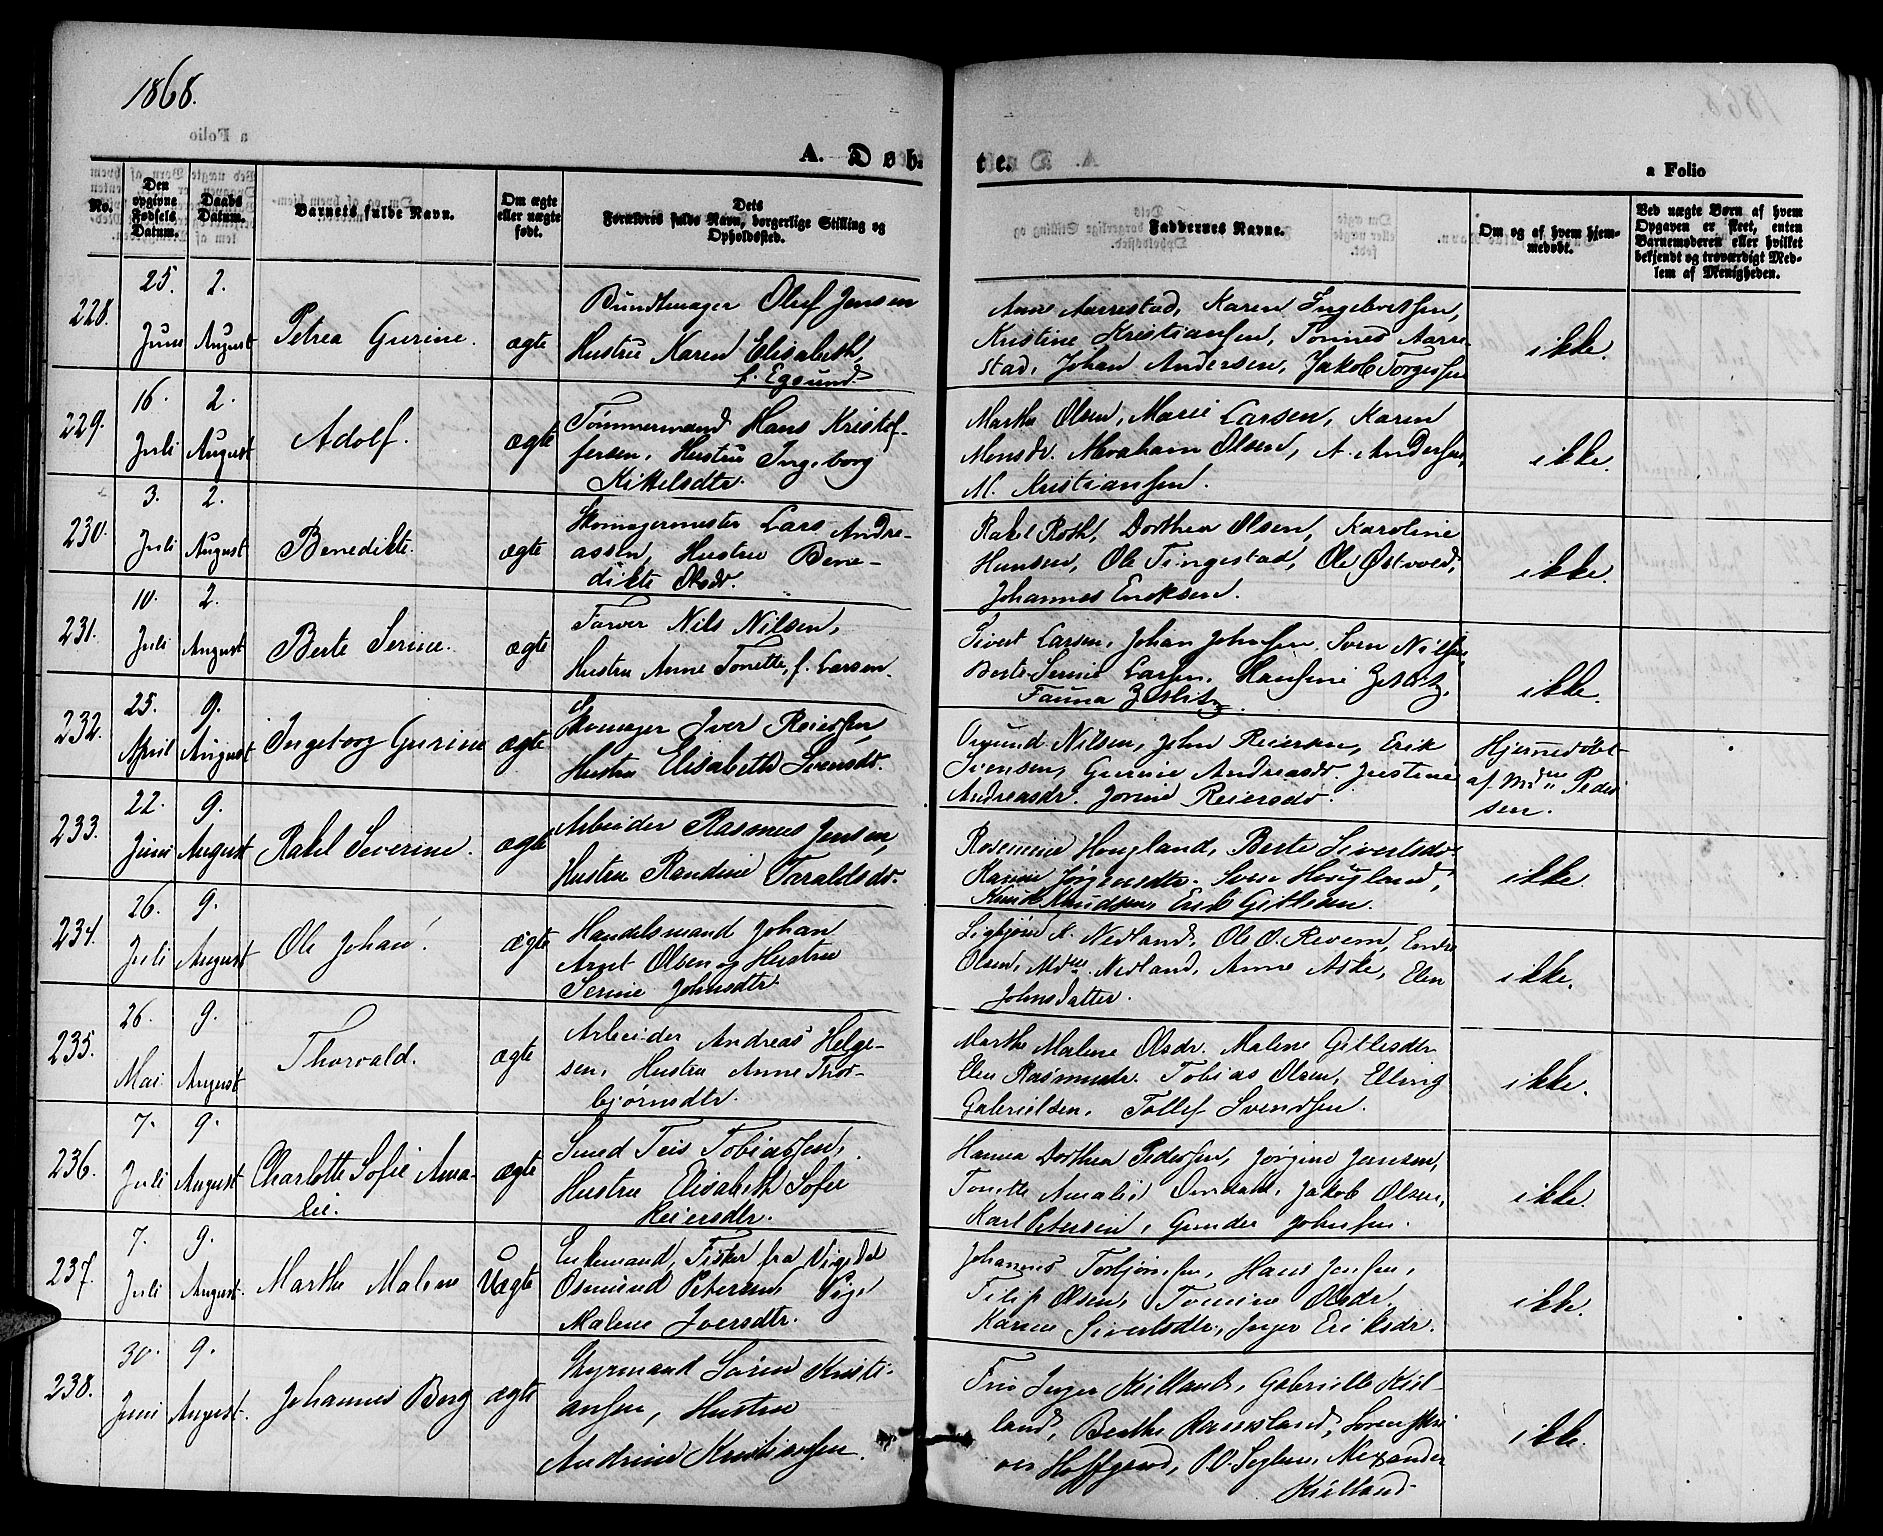 1868.
A. Døb-
te.
a Folio
No.
Den opgivne Fødsels Datum.
Daabs Datum.
Barnets fulde Navn.
Om ægte eller uægte født.
Dets Forældres fulde Navn, borgerlige Stilling og Opholdssted.
Faddernes Navne.
Om og af hvem hjemmedøbt.
Ved uægte Børn af hvem Opgaven er skeet, enten Barnemoderen eller hvilket bekjendt og troværdigt Medlem af Menigheden.
228.
25. Juni
2. August
Petrea Gurine.
ægte
Bundtmager Oluf Jensen
Hustru Karen Elisabeth,
f. Egsund
Anne Aarrestad, Karen Ingebretsen,
Kristine Kristiansen, Tønnes Aarre-
stad, Johan Andersen, Jakob Torgersen
ikke.
229.
16. Juli
2. August
Adolf.
ægte
Tømmermand Hans Kristof-
fersen, Hustru Ingeborg
Kittelsdtr.
Marthe Olsen, Marie Larsen, Karen
Monsdr. Abraham Olsen, A. Andersen,
M. Kristiansen.
ikke.
230.
3. Juli
2. August
Benedikte.
ægte
Skomagermester Lars Andre-
assen, Hustru Bene-
dikte Olsdr.
Rakel Roth, Dorthea Olsen, Karoline
Hansen, Ole Tingestad, Ole Østvold,
Johannes Eriksen.
ikke.
231.
10. Juli
2. August
Berte Serine.
ægte
Farver Nils Nilsen,
Hustru Anne Tonette, f. Larsen.
Sivert Larsen, Johan Johnsen, Sven Nilsen,
Berte Serine Larsen, Hansine Zetlitz,
Fauna Zetlitz.
ikke.
232.
25. April
9. August
Ingeborg Gurine
ægte
Skomager Iver Reiersen,
Hustru Elisabeth Svensdr.
Osmund Nilsen, John Reiersen, Erik
Iversen, Gurine Andreasdr. Justine
Andreasdr. Jorine Reiersdr.
Hjemmedøbt
af Mdme Peder-
sen.
233.
22. Juni
9. August
Rakel Severine.
ægte
Arbeider Rasmus Jensen,
Hustru Randine Taraldsdr.
Rosemine Hougland, Berte Sivertsdr.
Karine Jørgensdtr. Sven Hougland,
Knut Knudsen, Erik Gitlesen.
ikke.
234.
26. Juli
9. August
Ole Johan.
ægte
Handelsmand Johan
Arnt Olsen og Hustru
Serine Johnsdtr.
Sigbjørn K. Nedland, Ole O. Revem, Endre
Olsen, Mdme Nedland, Anne Aske, Elen
Johnsdatter.
ikke.
235.
26. Mai
9. August
Thorvald.
ægte
Arbeider Andreas Helge-
sen, Hustru Anne Thor-
bjørnsdtr.
Marthe Malene Olsdr. Malene Gitlesdtr
Elen Rasmusdr. Tobias Olsen, Elling
Gabrielsen, Tollef Svendsen.
ikke.
236.
7. Juli
9. August
Charlotte Sofie Ama-
lie.
ægte
Smed Teis Tobiassen,
Hustru Elisabeth Sofie
Reiersdtr.
Hanna Dorthea Pedersen, Jørgine Jansen,
Tonette Amalie Omdal, Jakob Olsen,
Karl Petersen, Gunder Johnsen.
ikke.
237.
7. Juli
9. August.
Marthe Malene
Uægte
Enkemand, Fisker fra Vigedal
Osmund Petersen, Pige
Malene Iversdtr.
Johannes Torbjørnsen, Hans Jensen,
Filip Olsen, Tomine Olsdr.
Karen Sivertsdtr, Inger Eriksdr.
ikke.
238.
30. Juni
9. August.
Johannes Berg
ægte
Styrmand Søren Kristi-
ansen, Hustru
Andrine Kristiansen.
Fru Inger Kielland, Gabrielle Kiel-
land, Berthe Ramsland, Soren
Hoffgaard, Alexander
Kielland.
ikke.